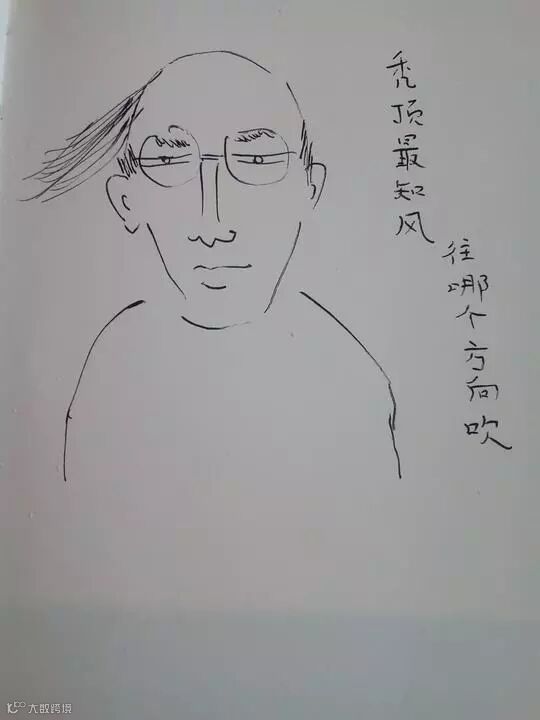 秃顶最知风
往哪个方向吹
大数跨境